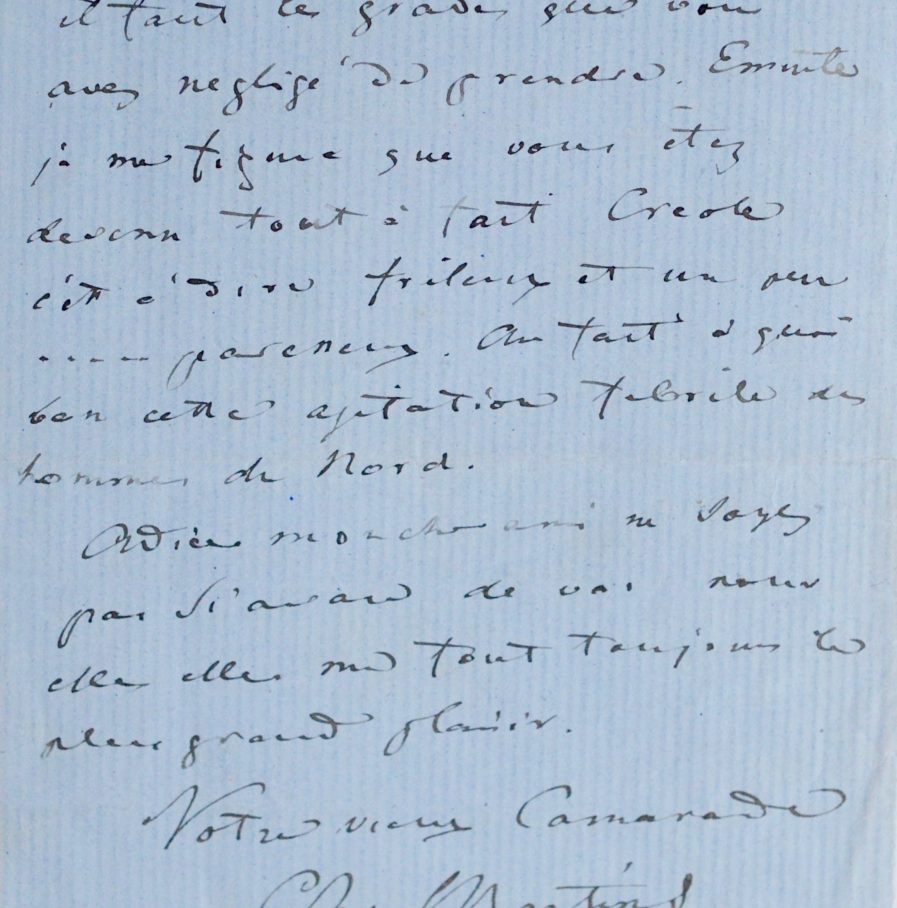 il faut les grades que vous
avez negligé de prendre. Ensuite
je me figure que vous êtez
devenu tout à fait Creole
c'ett à dire frileux et un peu
..... paresseux. Au fait à quoi
bon cette agitation febrile des
hommes du Nord.
Adieu mon cher ami ne soyez
pas si avare de vos nouv
elles elles me font toujours le
plus grand plaisir.
Votre vieux Camarade
Ch. Martins